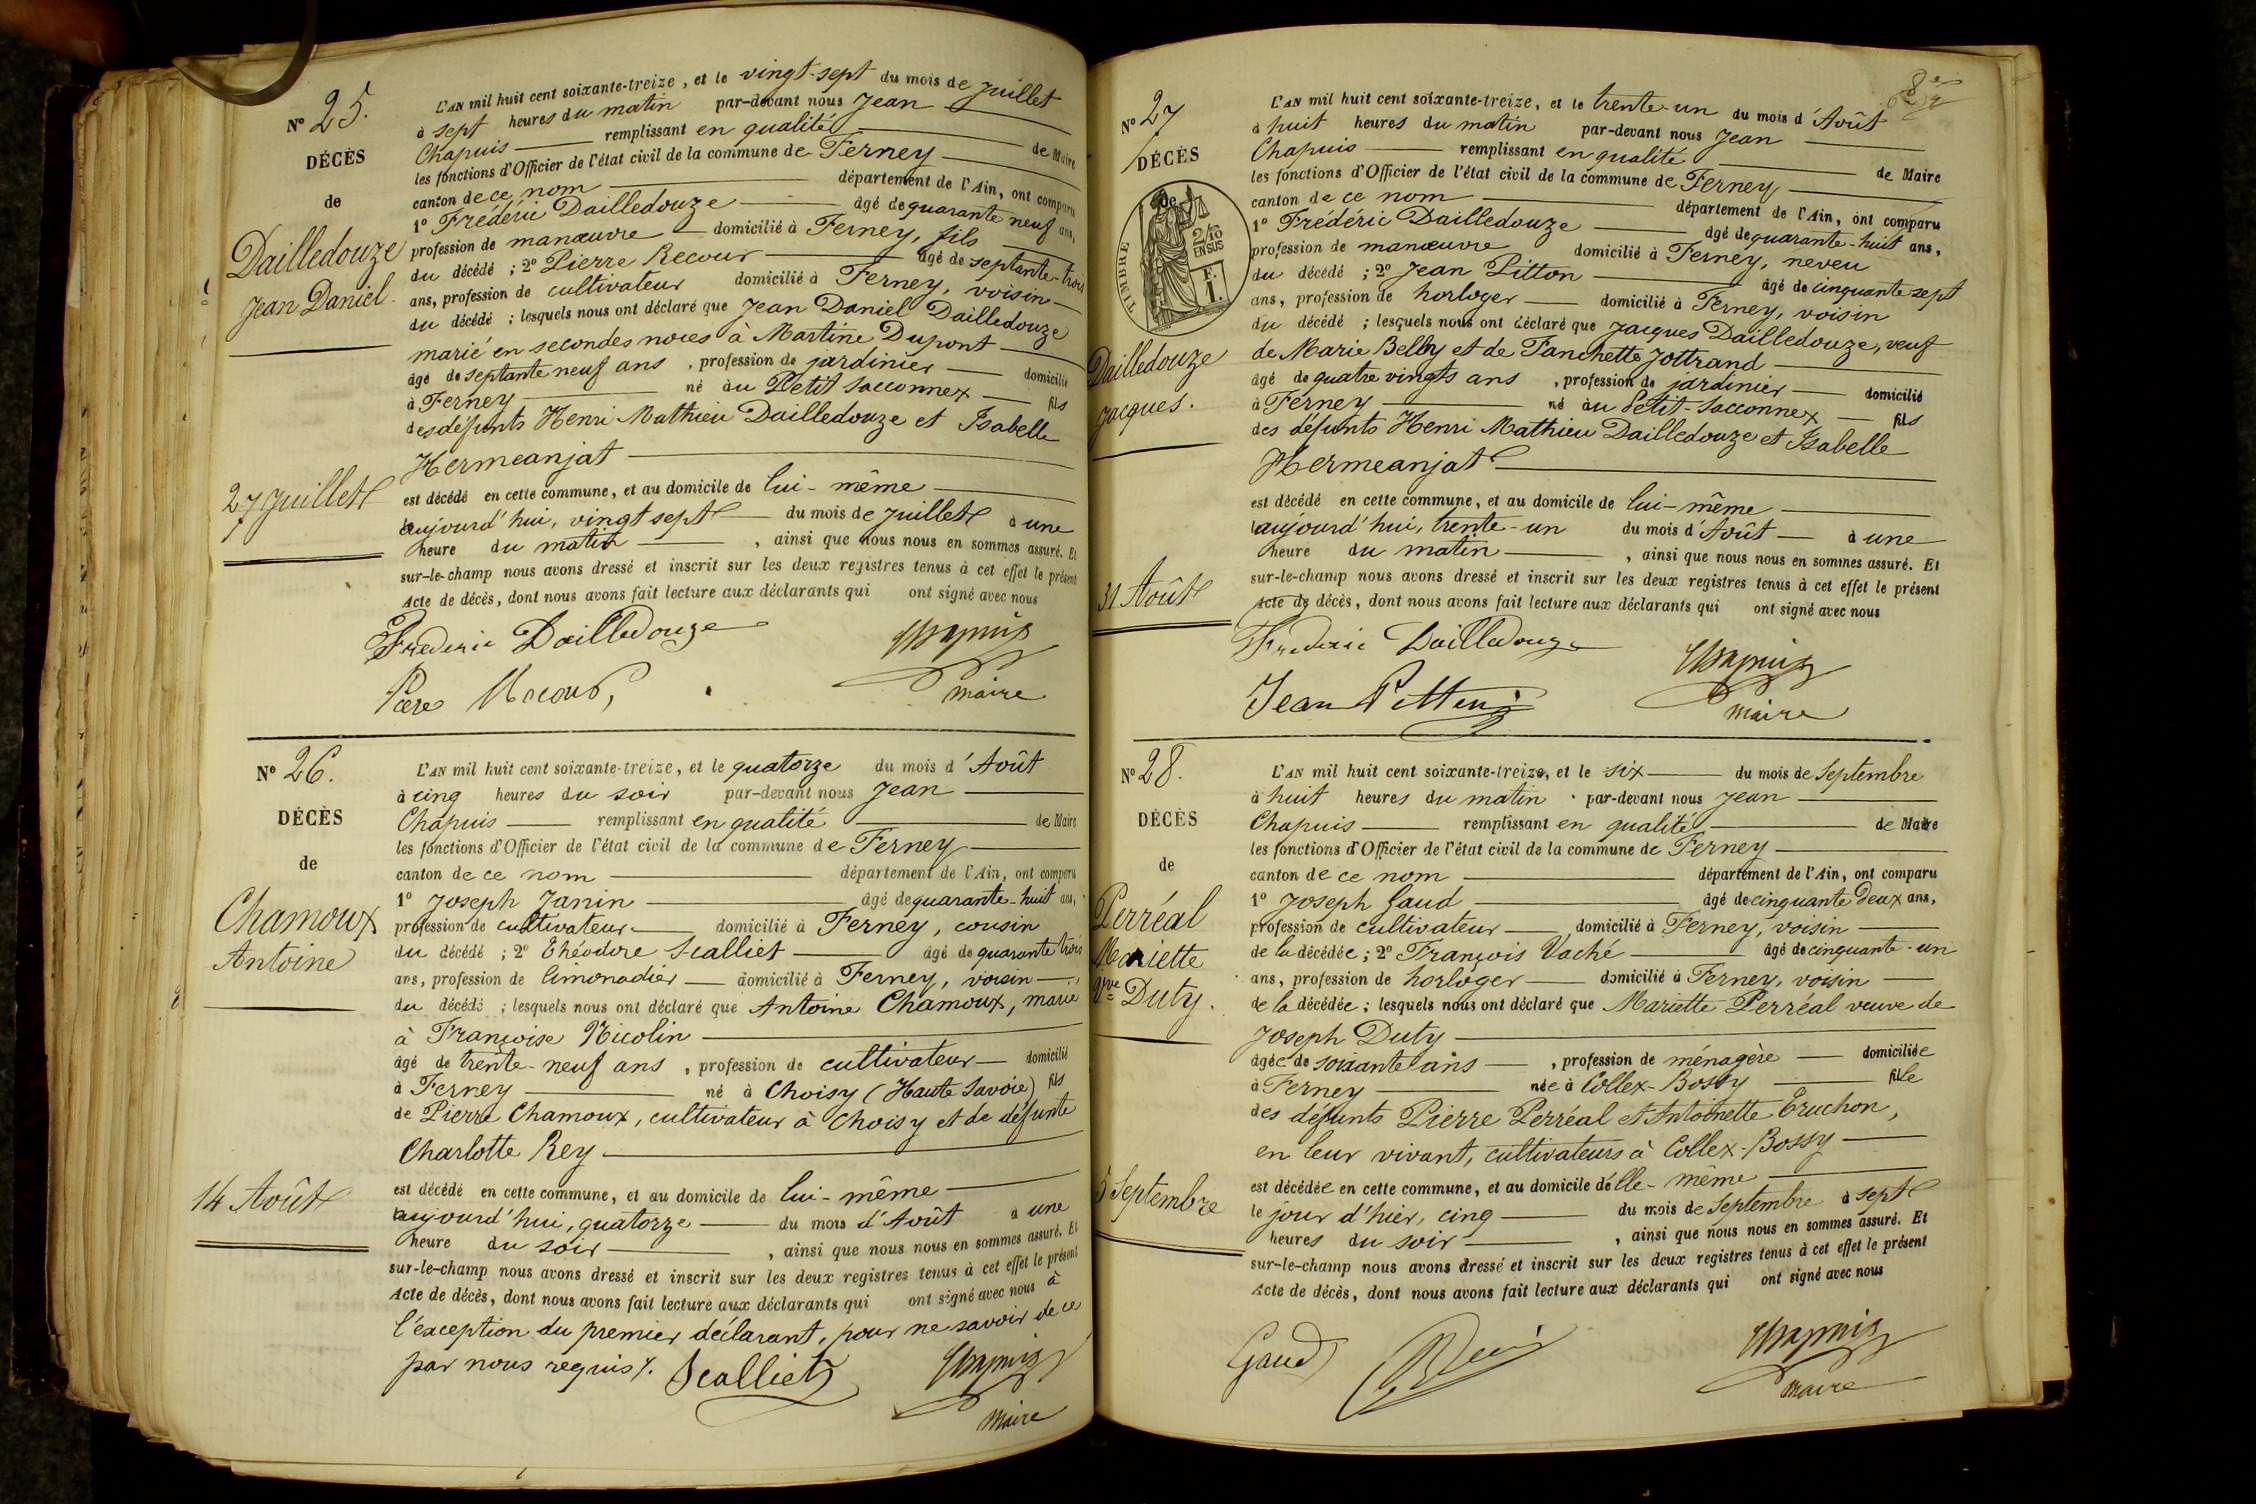 N° 25.
DÉCÈS
de
Dailledouze
Jean Daniel
27 Juillet
L'AN mil huit cent soixante-treize, et le vingt-sept du mois de Juillet
à sept heures du matin par-devant nous Jean
Chapuis remplissant en qualité de Maire
les fonctions d'Officier de l'état civil de la commune de Ferney
canton de ce nom département de l'Ain, ont comparu
1° Frédéric Dailledouze âgé de quarante neuf ans,
profession de manœuvre domicilié à Ferney, fils
du décédé ; 2° Pierre Recour âgé de septante-trois
ans, profession de cultivateur domicilié à Ferney, voisin
du décédé ; lesquels nous ont déclaré que Jean Daniel Dailledouze
marié en secondes noces à Martine Dupont
âgé de septante neuf ans, profession de jardinier domicilié
à Ferney né au Petit Sacconnex fils
des défunts Henri Mathieu Dailledouze et Isabelle
Hermeanjat
est décédé en cette commune, et au domicile de lui-même
aujourd'hui, vingt sept du mois de Juillet à une
heure du matin, ainsi que nous nous en sommes assuré. Et
sur-le-champ nous avons dressé et inscrit sur les deux registres tenus à cet effet le présent
Acte de décès, dont nous avons fait lecture aux déclarants qui ont signé avec nous
Frederic Dailledouze Chapuis
maire
N° 26.
DÉCÈS
de
Chamoux
Antoine
14 Août
L'AN mil huit cent soixante-treize, et le quatorze du mois d'Août
à cinq heures du soir par-devant nous Jean
Chapuis remplissant en qualité de Maire
les fonctions d'Officier de l'état civil de la commune de Ferney
canton de ce nom département de l'Ain, ont comparu
1° Joseph Janin âgé de quarante-huit ans,
profession de cultivateur domicilié à Ferney, cousin
du décédé ; 2° Théodore Scalliet âgé de quarante trois
ans, profession de limonadier domicilié à Ferney, voisin
du décédé ; lesquels nous ont déclaré que Antoine Chamoux, marié
à Françoise Nicolin
âgé de trente-neuf ans, profession de cultivateur domicilié
à Ferney né à Choisy (Haute Savoie) fils
de Pierre Chamoux, cultivateur à Choisy et de défunte
Charlotte Rey
est décédé en cette commune, et au domicile de lui-même
aujourd'hui, quatorze du mois d'Août à une
heure du soir, ainsi que nous nous en sommes assuré. Et
sur-le-champ nous avons dressé et inscrit sur les deux registres tenus à cet effet le présent
Acte de décès, dont nous avons fait lecture aux déclarants qui ont signé avec nous à
l'exception du premier déclarant, pour ne savoir de ce
par nous requis. Scalliet Chapuis
maire
N° 27
DÉCÈS
de
TIMBRE
2/10
EN SUS
F.
I.
Dailledouze
Jacques.
31 Août
L'AN mil huit cent soixante-treize, et le trente-un du mois d'Août
à huit heures du matin par-devant nous Jean
Chapuis remplissant en qualité de Maire
les fonctions d'Officier de l'état civil de la commune de Ferney
canton de ce nom département de l'Ain, ont comparu
1° Frédéric Dailledouze âgé de quarante-huit ans,
profession de manœuvre domicilié à Ferney, neveu
du décédé ; 2° Jean Pitton âgé de cinquante sept
ans, profession de horloger domicilié à Ferney, voisin
du décédé ; lesquels nous ont déclaré que Jacques Dailledouze, veuf
de Marie Belly et de Fanchette Jottrand
âgé de quatre vingts ans, profession de jardinier domicilié
à Ferney né au Petit-Sacconnex fils
des défunts Henri Mathieu Dailledouze et Isabelle
Hermeanjat
est décédé en cette commune, et au domicile de lui-même
aujourd'hui, trente-un du mois d'Août à une
heure du matin, ainsi que nous nous en sommes assuré. Et
sur-le-champ nous avons dressé et inscrit sur les deux registres tenus à cet effet le présent
Acte de décès, dont nous avons fait lecture aux déclarants qui ont signé avec nous
Frederic Dailledouze Chapuis
Jean Pitton maire
N° 28.
DÉCÈS
de
Perréal
Mariette
Vve Duty.
5 Septembre
L'AN mil huit cent soixante-treize, et le six du mois de Septembre
à huit heures du matin par-devant nous Jean
Chapuis remplissant en qualité de Maire
les fonctions d'Officier de l'état civil de la commune de Ferney
canton de ce nom département de l'Ain, ont comparu
1° Joseph Gaud âgé de cinquante deux ans,
profession de cultivateur domicilié à Ferney, voisin
de la décédée ; 2° François Vaché âgé de cinquante-un
ans, profession de horloger domicilié à Ferney, voisin
de la décédée ; lesquels nous ont déclaré que Mariette Perréal veuve de
Joseph Duty
âgée de soixante ans, profession de ménagère domiciliée
à Ferney née à Collex-Bossy fille
des défunts Pierre Perréal et Antoinette Truchon,
en leur vivant, cultivateurs à Collex-Bossy
est décédée en cette commune, et au domicile d'elle-même
le jour d'hier, cinq du mois de Septembre à sept
heures du soir, ainsi que nous nous en sommes assuré. Et
sur-le-champ nous avons dressé et inscrit sur les deux registres tenus à cet effet le présent
Acte de décès, dont nous avons fait lecture aux déclarants qui ont signé avec nous
Gaud Chapuis
maire